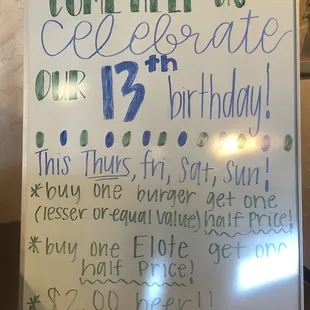 COME HELP US
celebrate
OUR 13th birthday!
This Thurs, fri, sat, sun!
*buy one burger get one
(lesser or equal value) half Price!
*buy one Elote get one
half Price!
*$2.00 beer!!